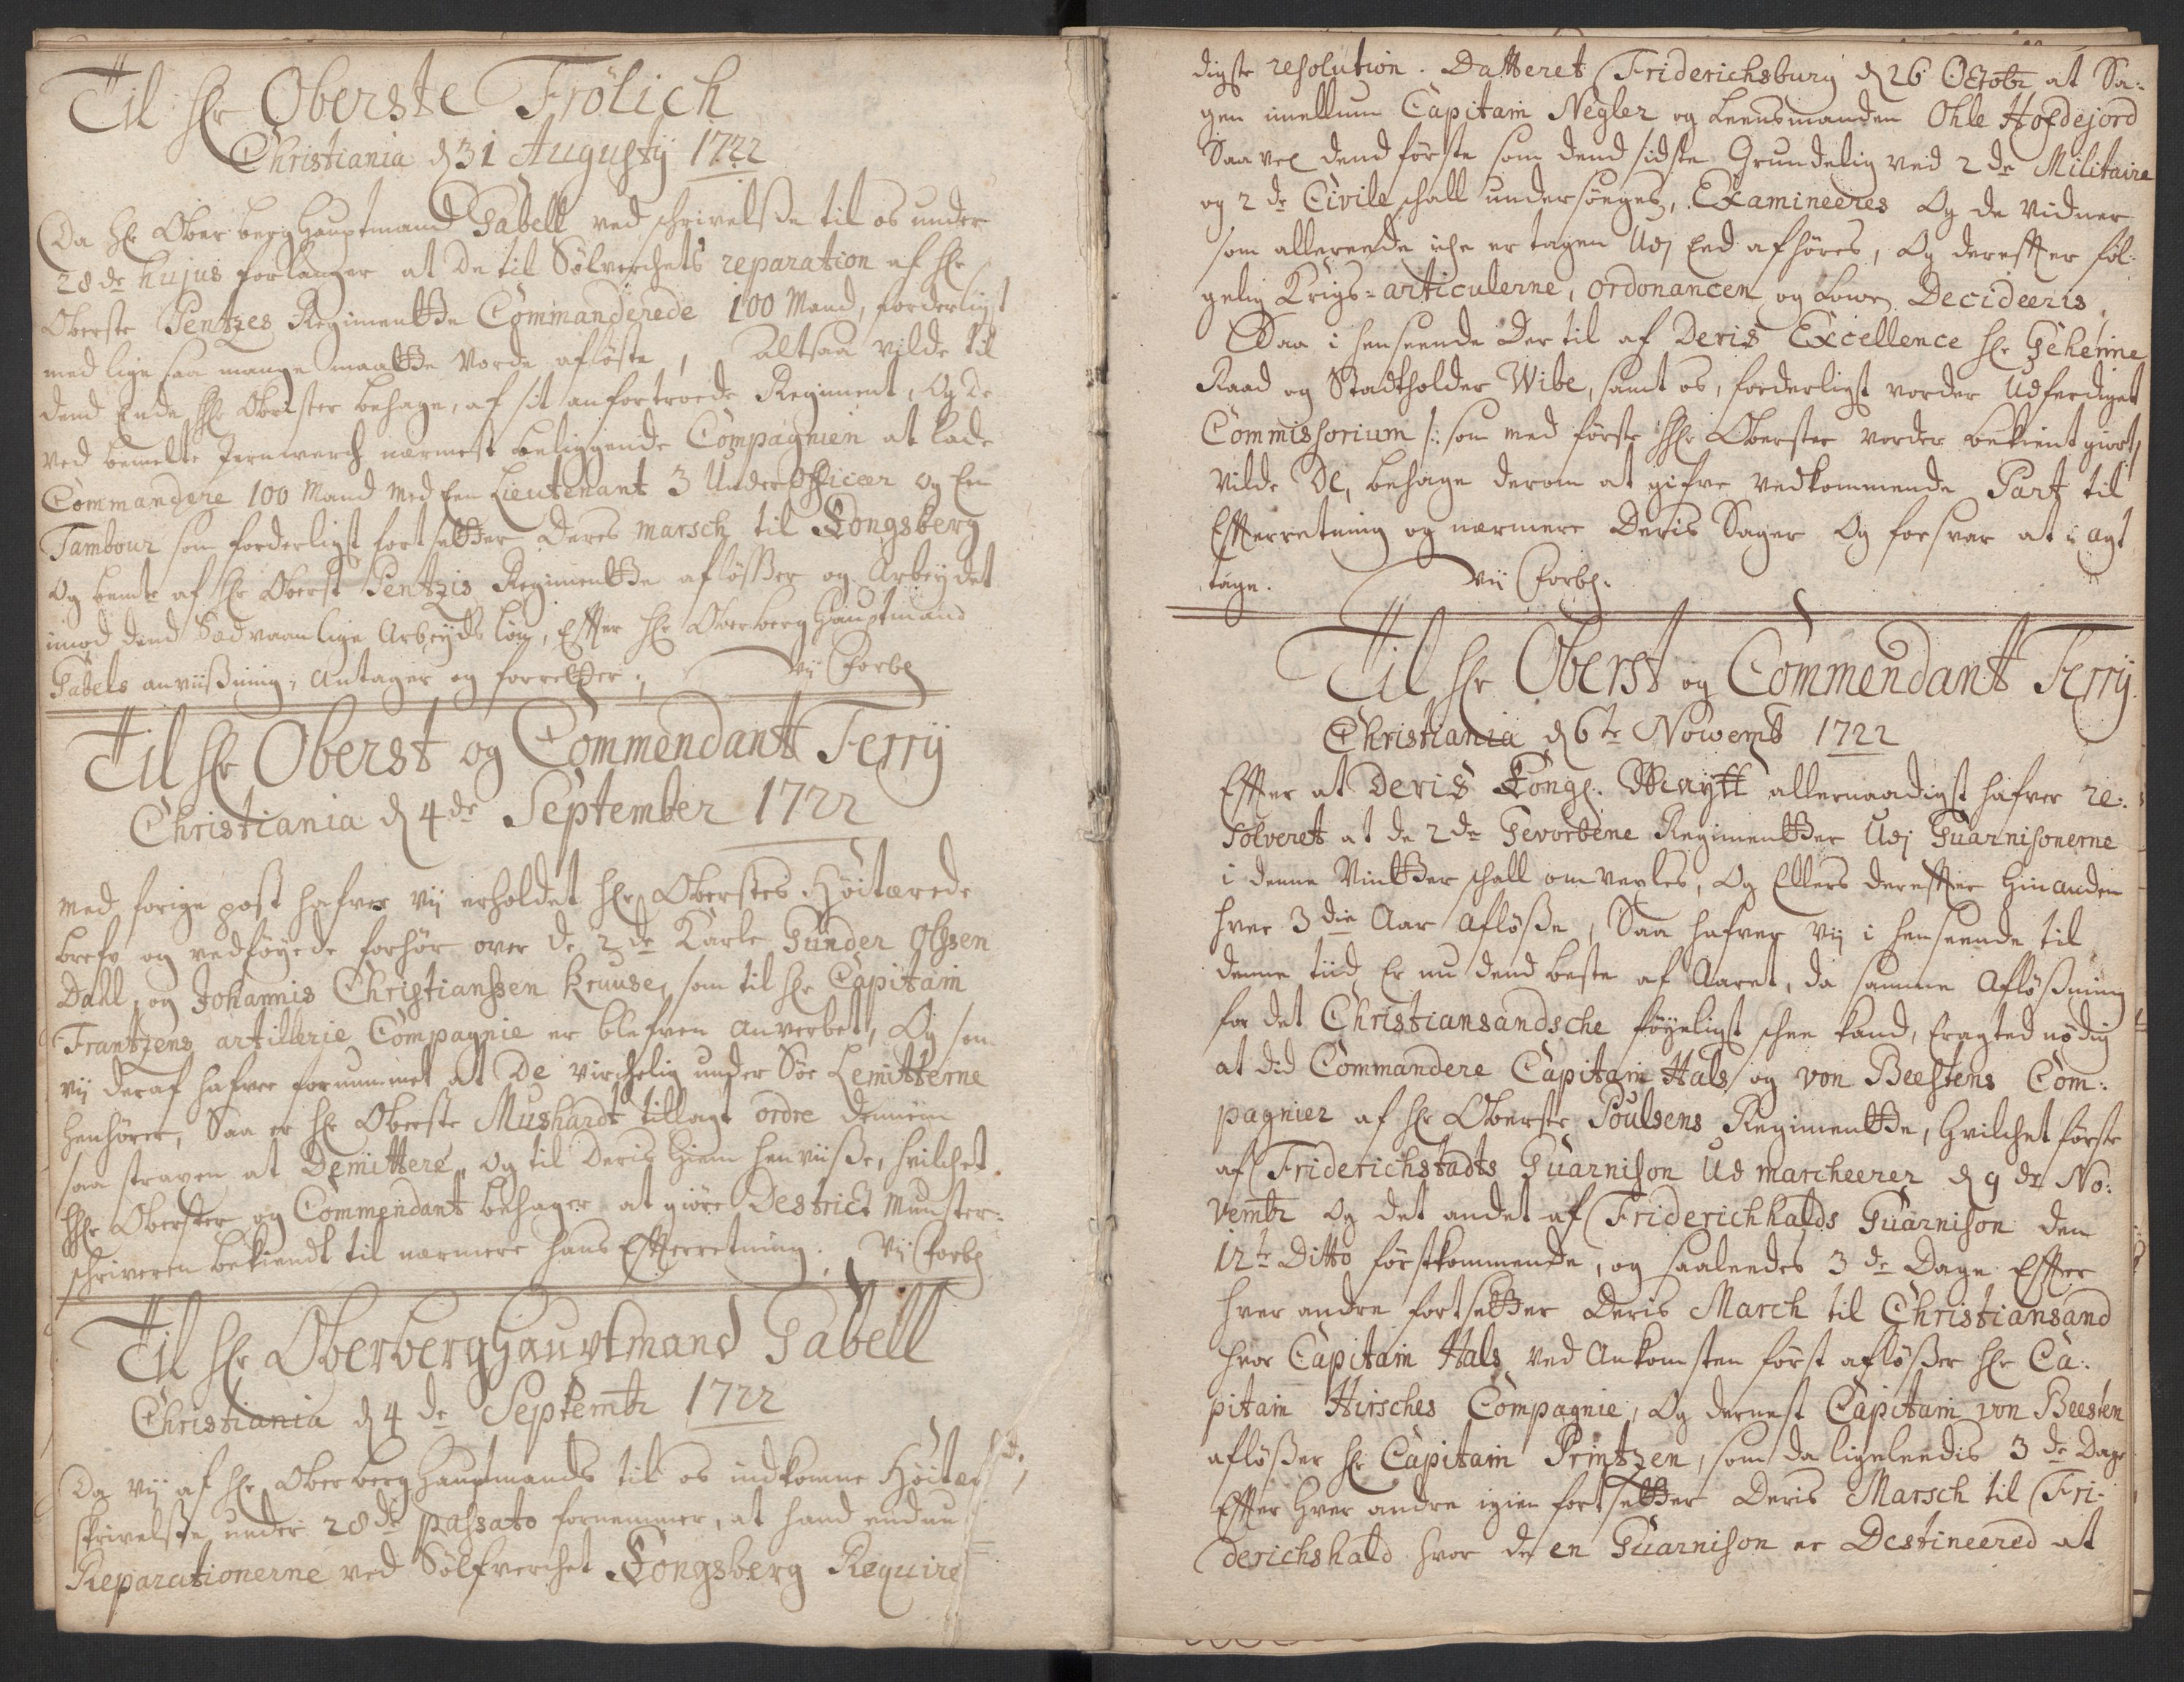 Til Hr Oberste Frölich
Christiania d 31 Augustij 1722
Da Hr Ober berg Hauptmand Gabell ved schrivelsse til os under
28de hujus forlanger at De til Sölverchets reparation af Hr
Oberste Pentzes Regimentte Commanderede 100 Mand, forderligst
med lige saa mange maatte vorde aflöste, altsaa vilde til
dend Ende Hr Obrister behage, af sit anfortroede Regiment, og de
ved bemelte Jernwerch nærmest beliggende Compagnien at lade
Commandere 100 Mand med Een Lieutenant 3 UnderOfficeer og Een
Tambour som forderligst fortsetter Deres marsch til Kongsberg
Og bemte af Hr Oberst Pentzis Regimentte aflösser og Arbeydet
imod dend Sædvaanlige Arbeyds lön, Effter Hr Oberberg Hauptmand
Gabels anviissning, Antager og forretter; Vij Forbl
Til Hr Oberst og Commendant Ferrÿ
Christiania d 4de September 1722
Med forige post hafver vij erholdet Hr Oberstes Höitærede
brefv og vedföyede forhör over de 2de Karle Gunder Olssen
Dahl, og Johannis Christianssen Kruuse, som til Hr Capitain
Frantzens artillerie Compagnie er blefven anverbet, Og som
vij deraf hafver fornummet at De virchelig under Söe Lemitterne
henhörer, Saa er Hr Oberste Mushardt tillagt ordre dennem
saa straxen at Demittere, Og til Deris Hiem henviisse, hvilchet
Hr Oberster og Commendant behager at giöre Destrict Munster-
schriveren bekiendt til nærmere hans Effterretning. Vij Forbl
Til Hr OberbergHauptmand Gabell
Christiania d 4de Septembr 1722
Da vij af Hr Oberberg Hauptmands til os indkomne Höitær
skrivelsse under 28de passato fornemmer, at hand endnu
Reparationerne ved Sölfverchet Kongsberg Require
digste resolution. Datteret Friderichsburg d 26 Octobr at Sa-
gen imellum Capitain Negler og Leensmanden Ohle Hofdejord
Saavel dend förste som dend sidste Grundelig ved 2de Militaire
og 2de Civile schall undersöeges, Examineeres Og de Vidner
som allereede iche er tagen Udj Eed afhöres, Og dereffter föl-
gelig Krigs-articulerne, ordonancen og Lowen Decideeris
Saa i henseende Dertil af Deris Excellence Hr Geheime
Raad og Stadtholder Wibe, samt os, forderligst vorder Udferdiget
Commissorium /: som med förste Hr Oberster vorder bekient giort,
vilde De, behage derom at gifve Vedkommende Part til
Effterretning og nærmere Deris Sager Og forsvar at i agt
tage. Vij Forbl.
Til Hr Oberst og Commendant Ferrÿ.
Christiania d 6te Nowemb 1722
Effter at Deris Kongl. Maytt allernaadigst hafver re-
solveret at de 2de Gevorbene Regimentter Udj Guarnisonerne
i denne Vintter schall omvexles, Og Ellers dereffter Hinanden
hver 3die Aar aflösse, Saa hafver vij i henseende til
denne tiid Er nu dend beste af Aaret, da samme Aflössning
for det Christiansandsche föyeligst schee kand, Eragted nödig
at did Commandere Capitain Hals og von Beestens Com-
pagnier af Hr Oberste Poulsens Regimentte, Hvilchet förste
af Friderichstadts Guarnison Ud marcheerer d 9de No-
vembr Og det andet af Friderichhalds Guarnison den
12te Ditto förstkommende, og saaleedes 3de Dage Effter
hver andre fortsetter Deris March til Christiansand
hvor Capitain Hals ved Ankomsten först aflösser Hr Ca-
pitain Hirsches Compagnie, Og dernest Capitain von Beesten
aflösser Hr Capitain Printzen, som da ligeleedis 3de Dage
Effter Hver andre igien fortsetter Deris Marsch til Fri-
derichshald hvor de en Guarnison er Destineered at